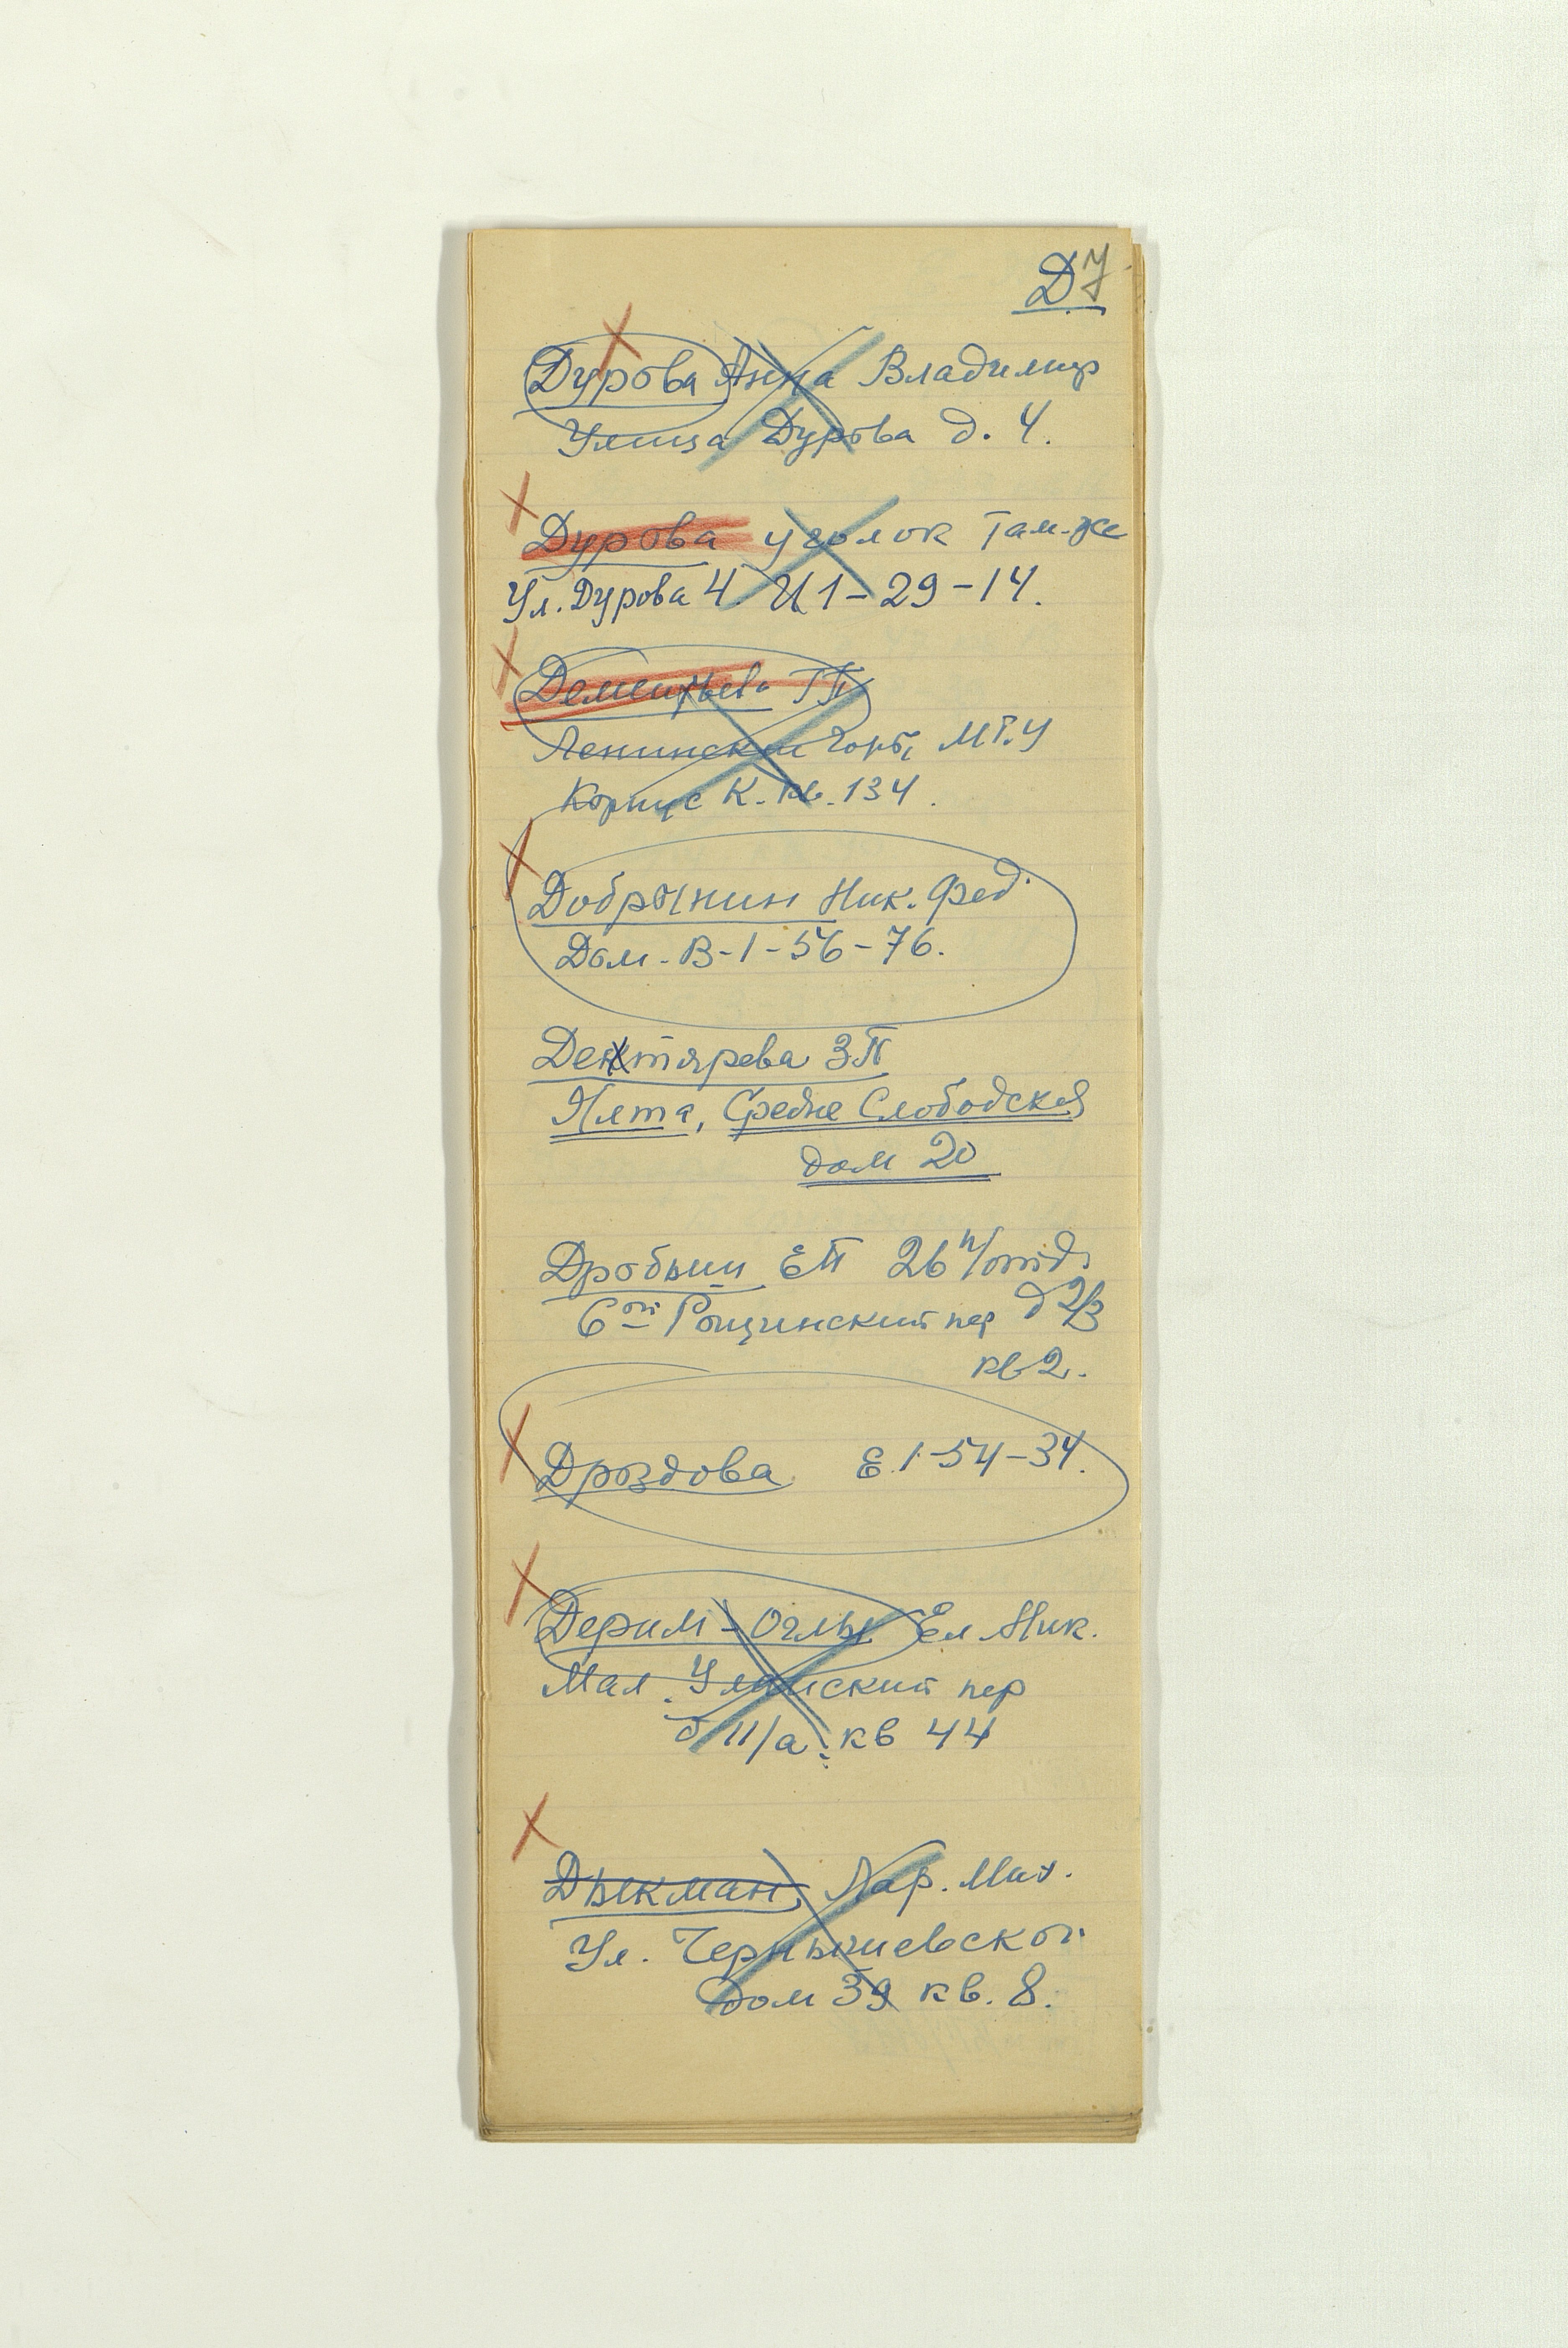 Д 7
Дурова Анна Владимир
Улица Дурова д. 4.
Дурова уголок Там-же
Ул. Дурова 4 И 1-29-14.
Дементьева ГП
Ленинские горы, МГУ
Корпус К. кв. 134.
Добрынин Ник. Фед.
Дом. В-1-56-76.
Дектярева ЗП
Ялта, Средне Слободская
дом 20
Дробыш ЕП 26 п/отд.
6ой Рощинский пер д 2/3
кв 2.
Дроздова Е.1-54-34.
Дерим-Оглы Ел Ник.
Мал. Уланский пер
д 11/а. кв 44
Дыкман Лар. Мих.
Ул. Чернышевског.
дом 39 кв. 8.